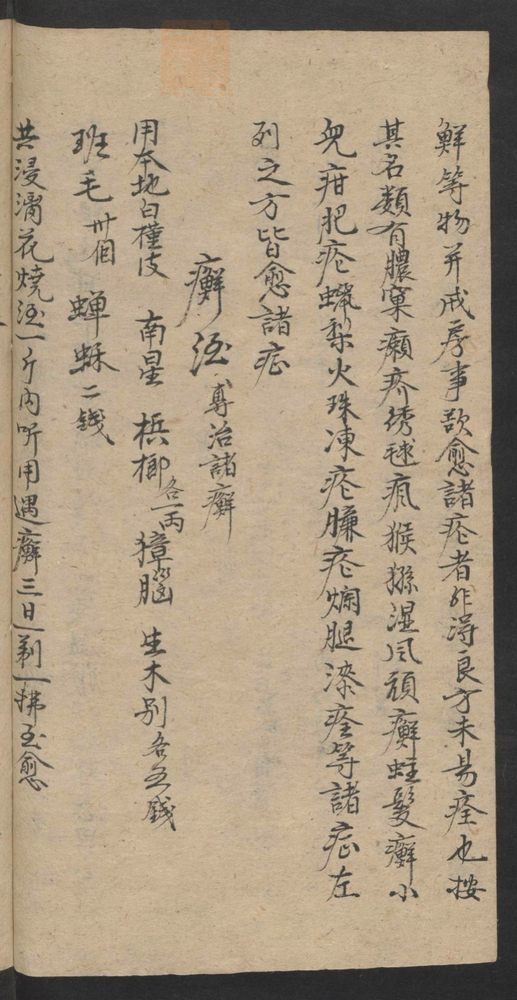 鮮等物并戒房事欲愈諸疮者非淂良方未易痊也按
其名類有膿窠癩疥綉毬瘋猴猻濕风頑癬蛀髮癬小
兒疳肥疮蠟梨火珠凍疮臁疮爛腿漆痊等諸症左
列之方皆愈諸症
癬酒 專治諸癬
用本地白槿皮 南星 梹榔各一両 獐腦 生木别各五錢
班毛卅個 蟬蘇二錢
共浸滴花燒酒一斤内听用遇癬三日剃一拂至愈